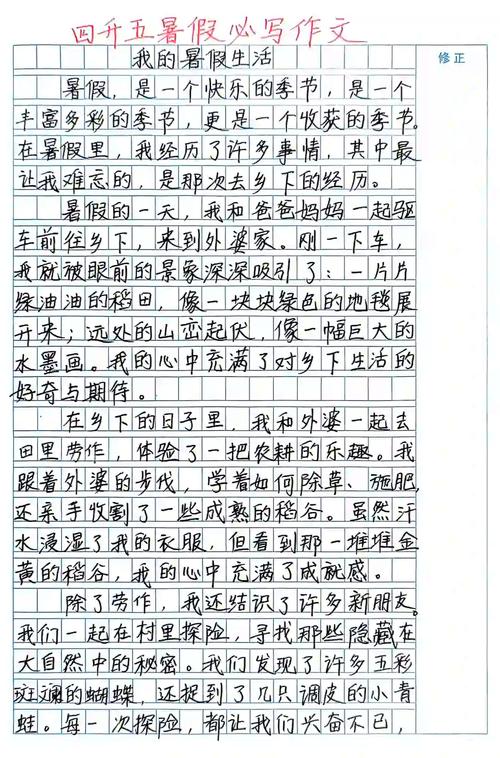 四升五暑假必写作文
我的暑假生活
修正
暑假，是一个快乐的季节，是一个
丰富多彩的季节，更是一个收获的季节。
在暑假里，我经历了许多事情，其中最
让我难忘的，是那次去乡下的经历。
暑假的一天，我和爸爸妈妈一起驱
车前往乡下，来到外婆家。刚一下车，
我就被眼前的景象深深吸引了：一片片
绿油油的稻田，像一块块绿色的地毯展
开来；远处的山峦起伏，像一幅巨大的
水墨画。我的心中充满了对乡下生活的
好奇与期待。
在乡下的日子里，我和外婆一起去
田里劳作，体验了一把农耕的乐趣。我
跟着外婆的步伐，学着如何除草、施肥，
还亲手收割了一些成熟的稻谷。虽然汗
水浸湿了我的衣服，但看到那一堆堆金
黄的稻谷，我的心中充满了成就感。
除了劳作，我还结识了许多新朋友。
我们一起在村里探险，寻找那些隐藏在
大自然中的秘密。我们发现了许多五彩
斑斓的蝴蝶，还捉到了几只调皮的小青
蛙。每一次探险，都让我们兴奋不已，